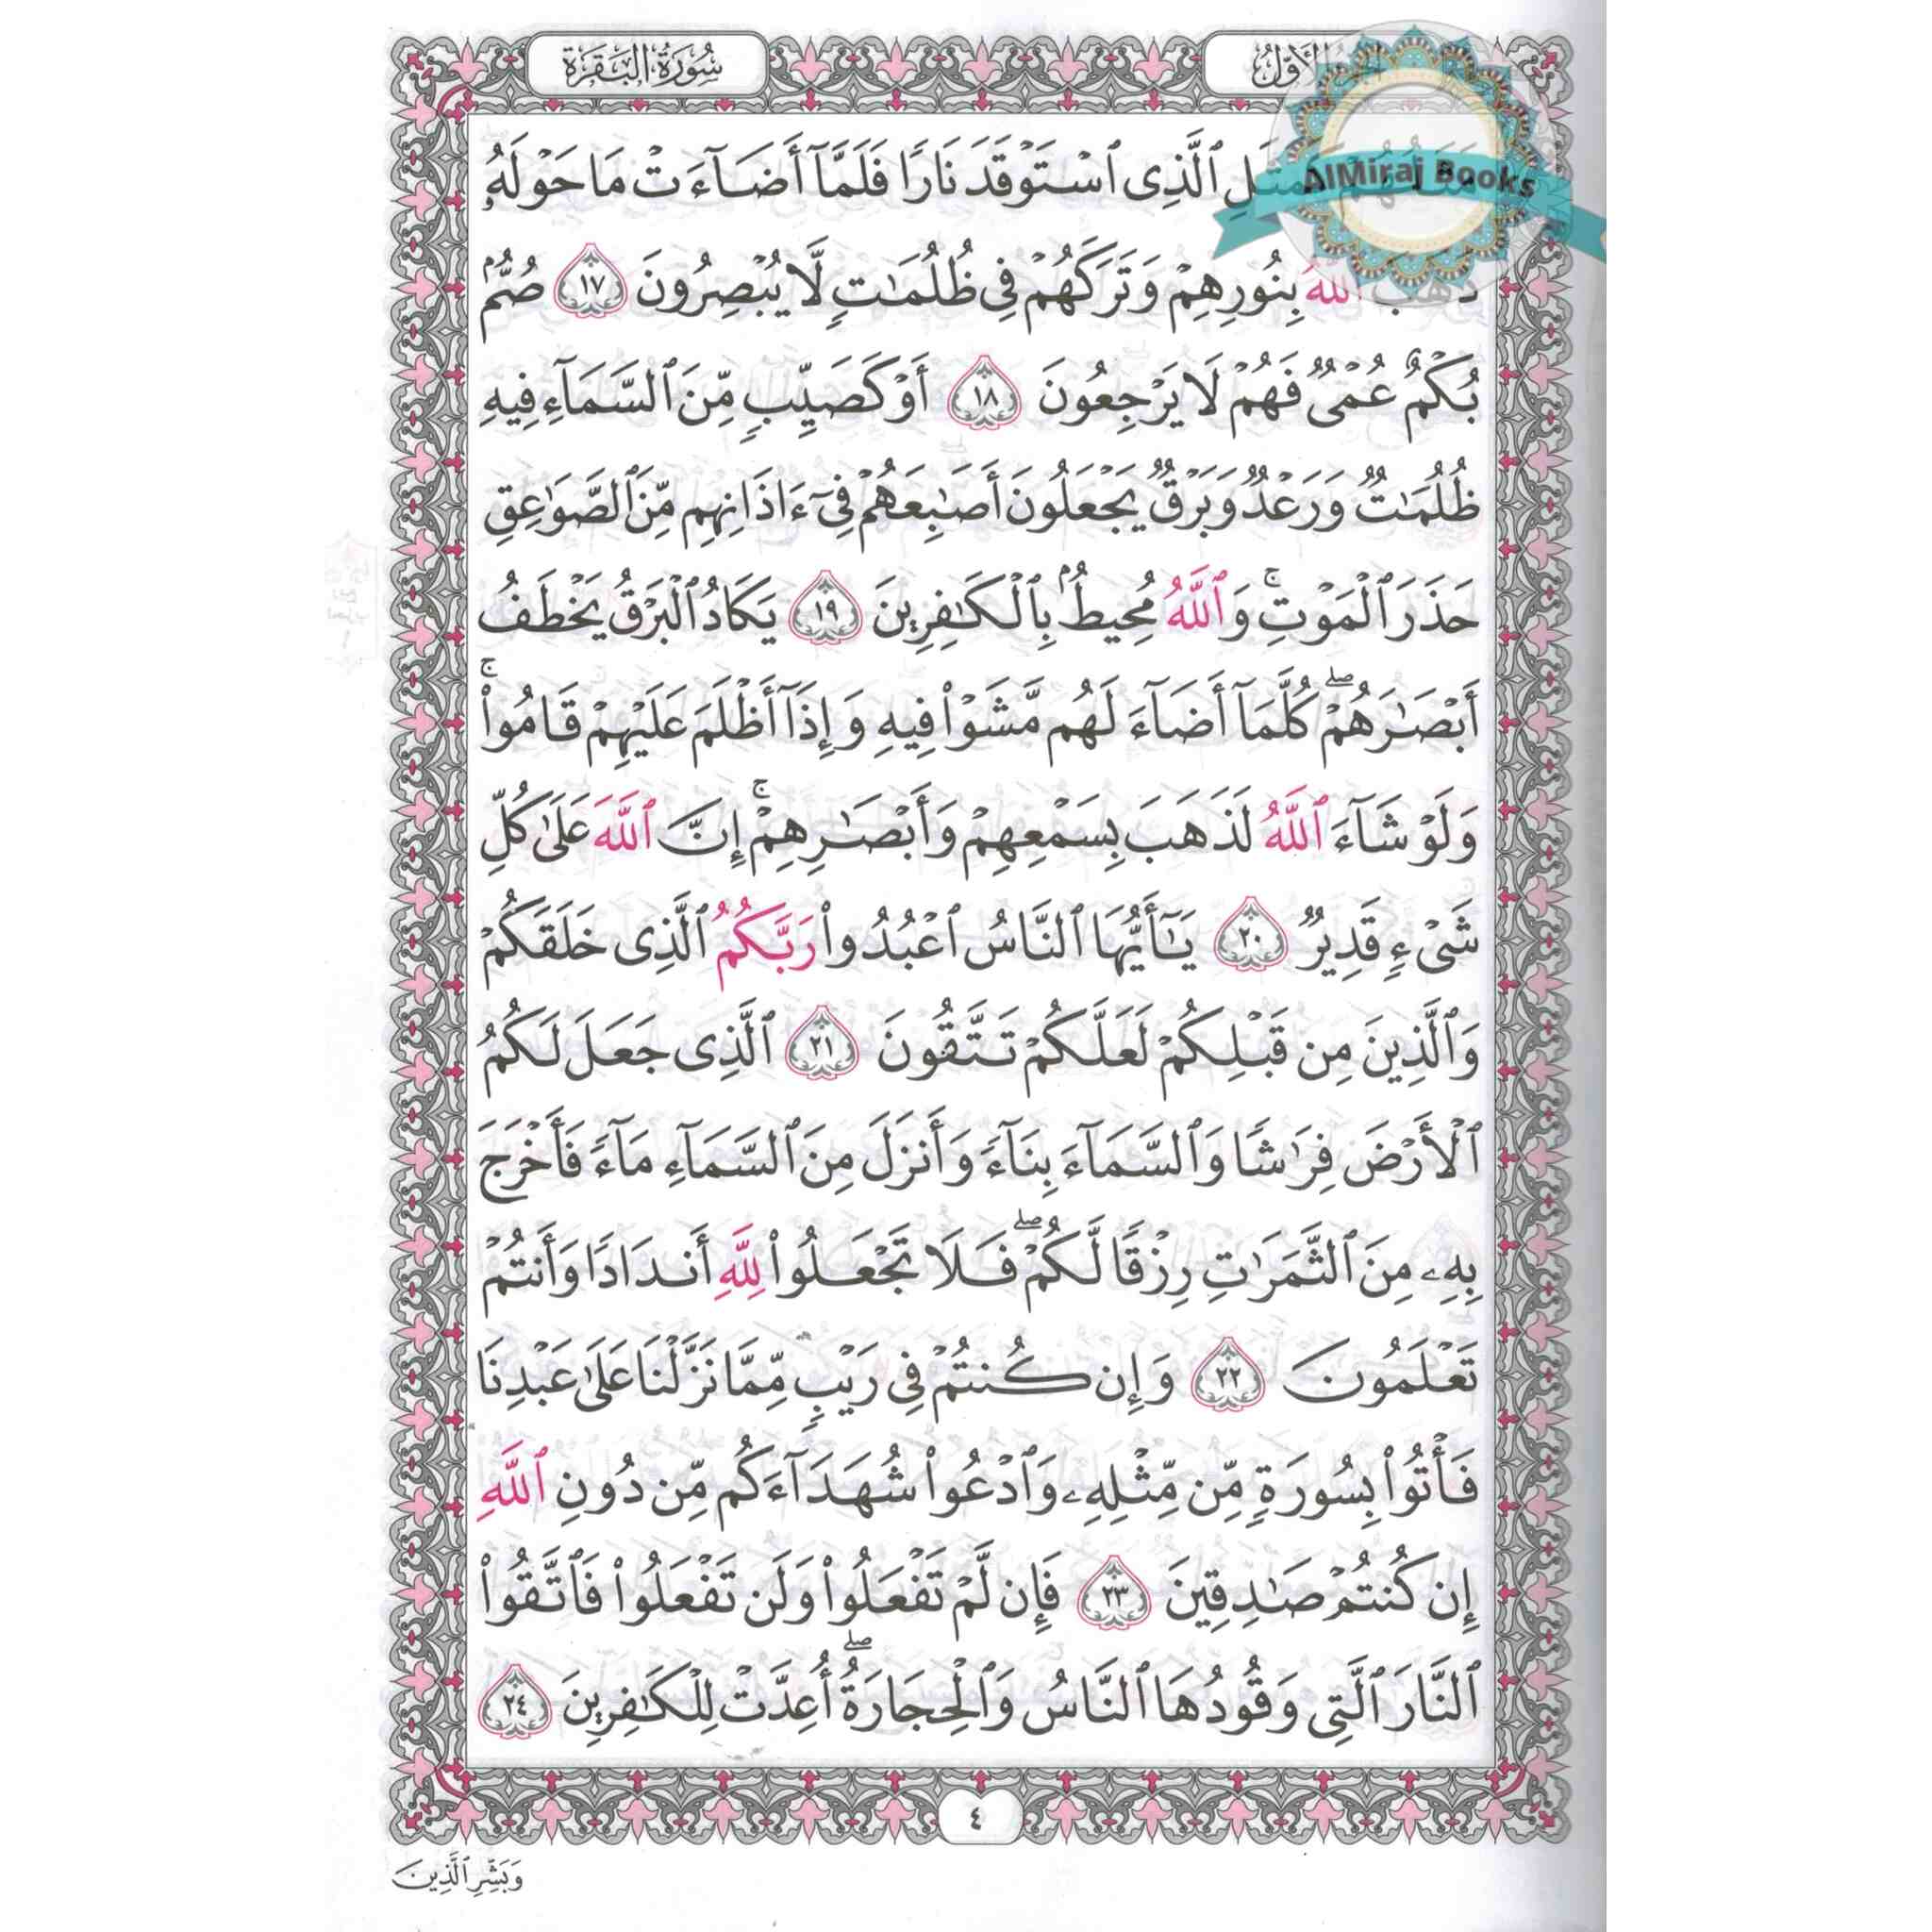 الأول
سورة البقرة
AlMiraj Books
ٱلَّذِى ٱسْتَوْقَدَ نَارًا فَلَمَّآ أَضَآءَتْ مَا حَوْلَهُۥ
ٱللَّهُ بِنُورِهِمْ وَتَرَكَهُمْ فِى ظُلُمَـٰتٍ لَّا يُبْصِرُونَ ١٧ صُمٌّۢ
بُكْمٌ عُمْىٌ فَهُمْ لَا يَرْجِعُونَ ١٨ أَوْ كَصَيِّبٍ مِّنَ ٱلسَّمَآءِ فِيهِ
ظُلُمَـٰتٌ وَرَعْدٌ وَبَرْقٌ يَجْعَلُونَ أَصَـٰبِعَهُمْ فِىٓ ءَاذَانِهِم مِّنَ ٱلصَّوَٰعِقِ
حَذَرَ ٱلْمَوْتِ ۚ وَٱللَّهُ مُحِيطٌۢ بِٱلْكَـٰفِرِينَ ١٩ يَكَادُ ٱلْبَرْقُ يَخْطَفُ
أَبْصَـٰرَهُمْ ۖ كُلَّمَآ أَضَآءَ لَهُم مَّشَوْا۟ فِيهِ وَإِذَآ أَظْلَمَ عَلَيْهِمْ قَامُوا۟ ۚ
وَلَوْ شَآءَ ٱللَّهُ لَذَهَبَ بِسَمْعِهِمْ وَأَبْصَـٰرِهِمْ ۚ إِنَّ ٱللَّهَ عَلَىٰ كُلِّ
شَىْءٍ قَدِيرٌ ٢٠ يَـٰٓأَيُّهَا ٱلنَّاسُ ٱعْبُدُوا۟ رَبَّكُمُ ٱلَّذِى خَلَقَكُمْ
وَٱلَّذِينَ مِن قَبْلِكُمْ لَعَلَّكُمْ تَتَّقُونَ ٢١ ٱلَّذِى جَعَلَ لَكُمُ
ٱلْأَرْضَ فِرَٰشًا وَٱلسَّمَآءَ بِنَآءً وَأَنزَلَ مِنَ ٱلسَّمَآءِ مَآءً فَأَخْرَجَ
بِهِۦ مِنَ ٱلثَّمَرَٰتِ رِزْقًا لَّكُمْ ۖ فَلَا تَجْعَلُوا۟ لِلَّهِ أَندَادًا وَأَنتُمْ
تَعْلَمُونَ ٢٢ وَإِن كُنتُمْ فِى رَيْبٍ مِّمَّا نَزَّلْنَا عَلَىٰ عَبْدِنَا
فَأْتُوا۟ بِسُورَةٍ مِّن مِّثْلِهِۦ وَٱدْعُوا۟ شُهَدَآءَكُم مِّن دُونِ ٱللَّهِ
إِن كُنتُمْ صَـٰدِقِينَ ٢٣ فَإِن لَّمْ تَفْعَلُوا۟ وَلَن تَفْعَلُوا۟ فَٱتَّقُوا۟
ٱلنَّارَ ٱلَّتِى وَقُودُهَا ٱلنَّاسُ وَٱلْحِجَارَةُ ۖ أُعِدَّتْ لِلْكَـٰفِرِينَ ٢٤
٤
وَبَشِّرِ ٱلَّذِينَ